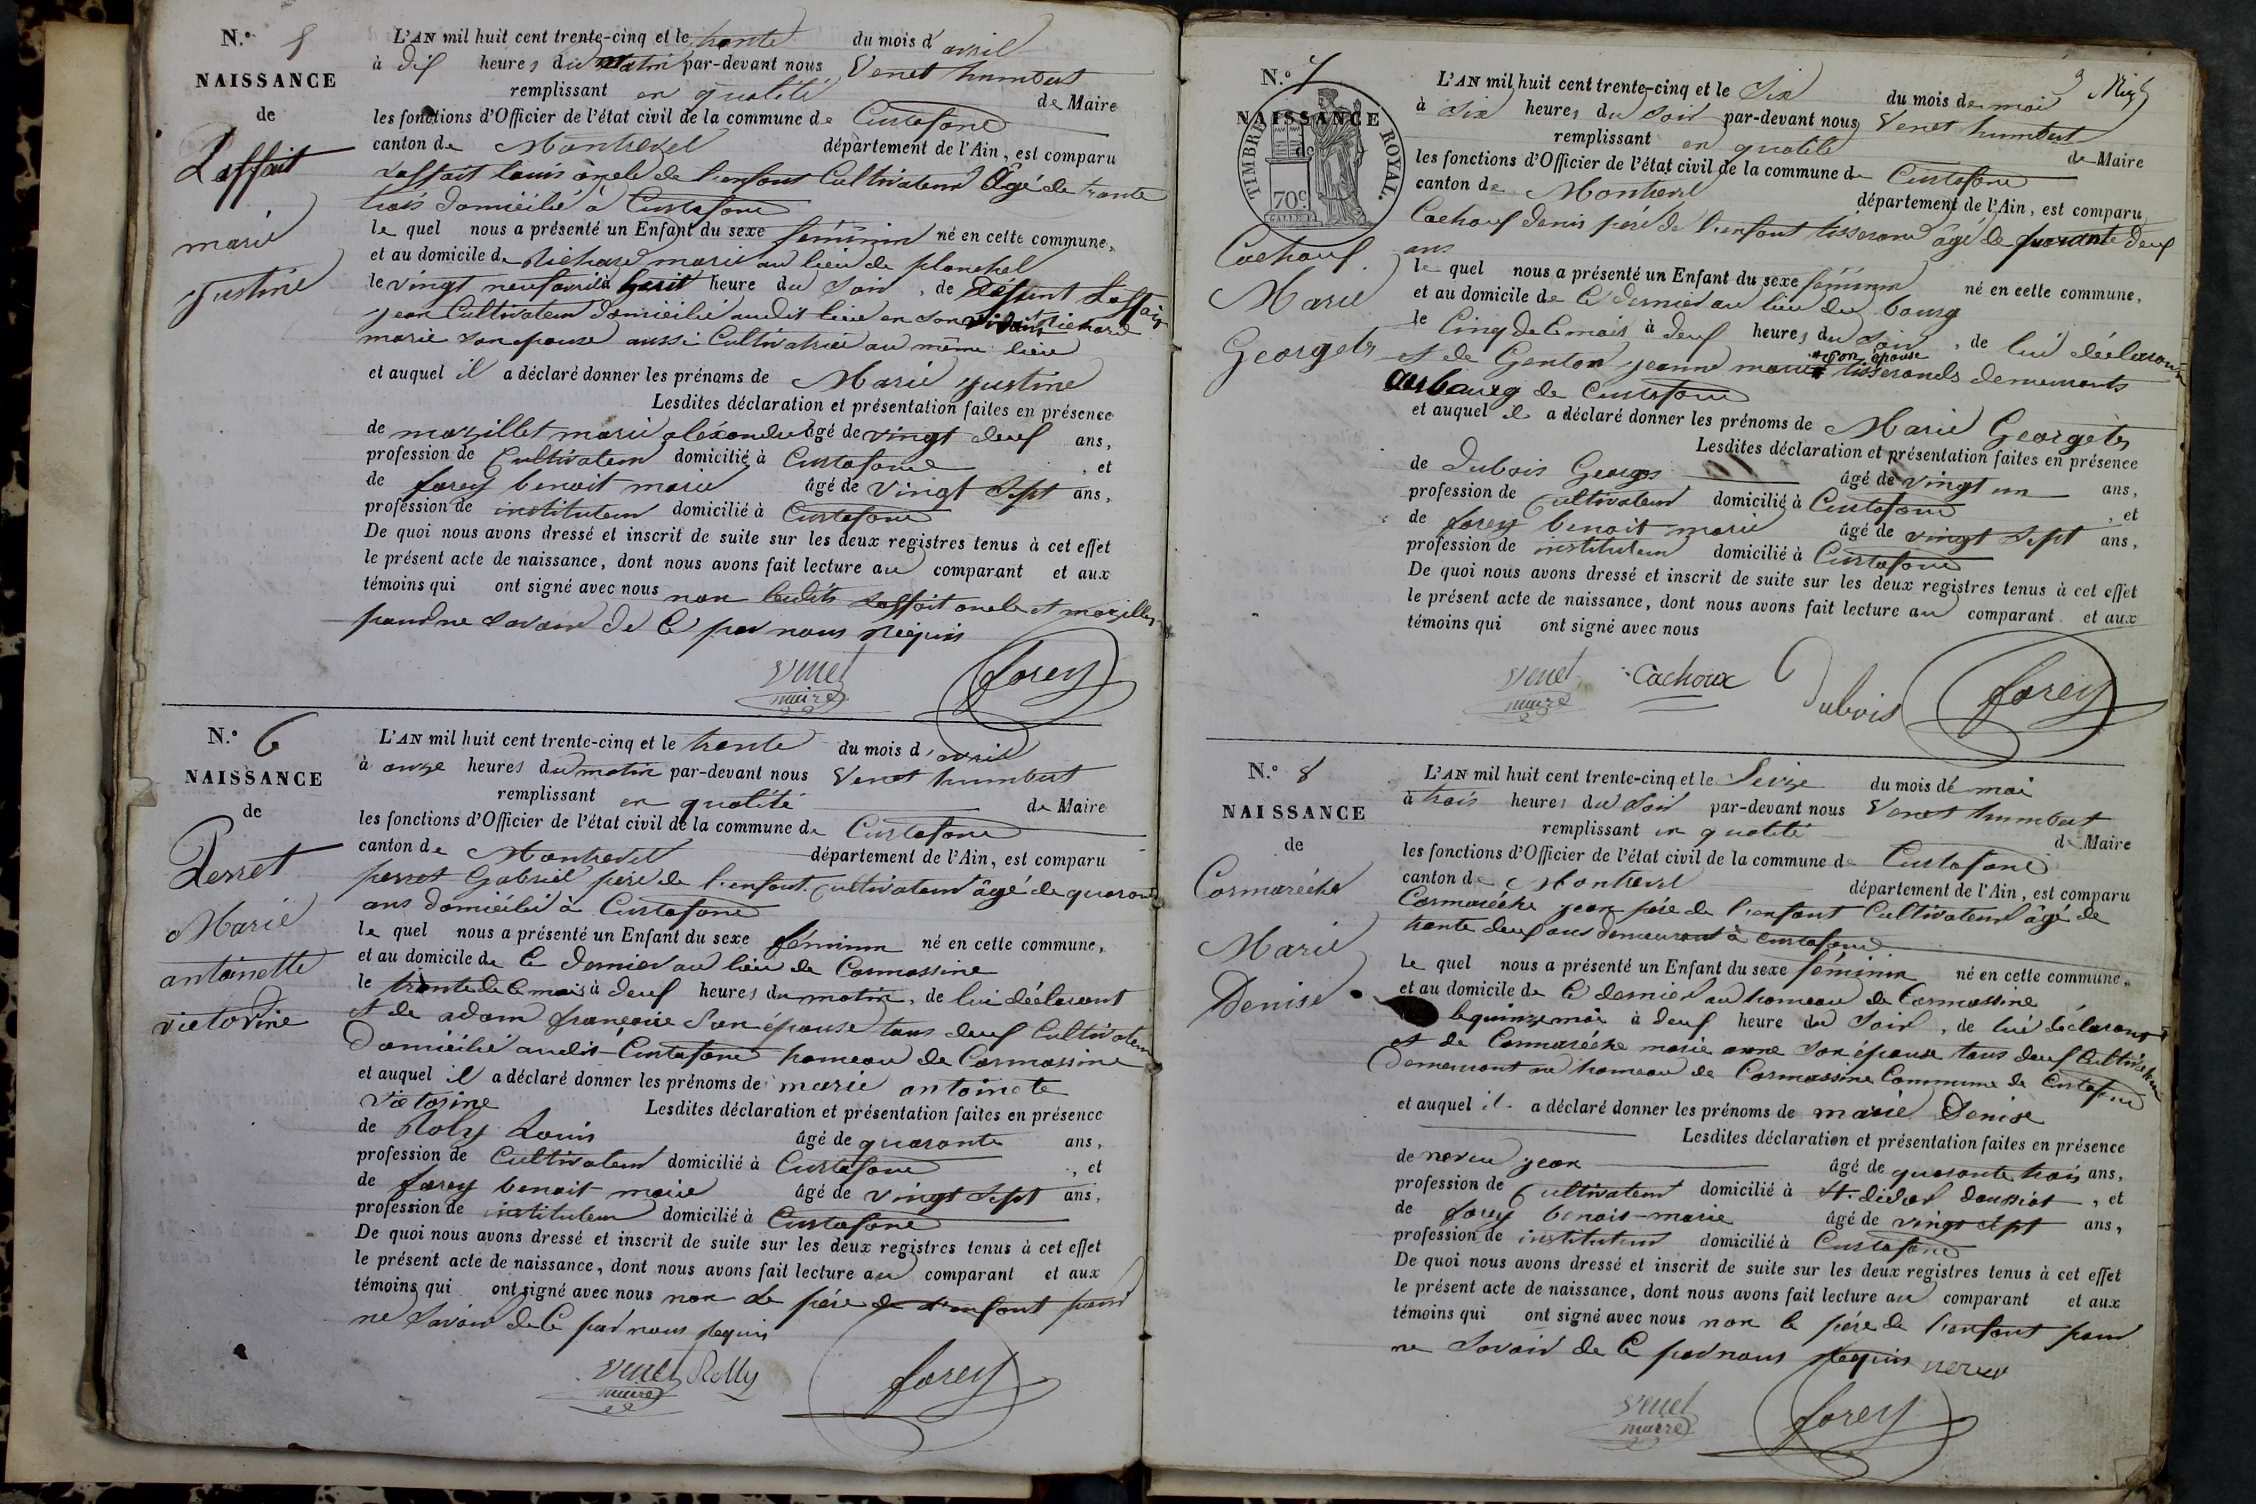 N.° 5
NAISSANCE
de
Laffait
marie
justine
L'AN mil huit cent trente-cinq et le trente du mois d'avril
à dix heures du matin par-devant nous Venet humbert
remplissant en qualité de Maire
les fonctions d'Officier de l'état civil de la commune de Curtafond
canton de Montrevel département de l'Ain, est comparu
Laffait louis oncle de l'enfant Cultivateur âgé de trente
trois domicilié à Curtafond
le quel nous a présenté un Enfant du sexe féminin né en cette commune,
et au domicile de Richard marie au lieu de planchel
le vingt neuf avril à huit heure du soir, de Deffunt Laffait
jean Cultivateur domicilié audit lieu en son vivant et Richard
marie son epouse aussi Cultivatrice au même lieu
et auquel il a déclaré donner les prénoms de Marie justine
Lesdites déclaration et présentation faites en présence
de mazillet marie aléxandre âgé de vingt deux ans,
profession de Cultivateur domicilié à Curtafond, et
de forey benoit marie âgé de vingt sept ans,
profession de instituteur domicilié à Curtafond
De quoi nous avons dressé et inscrit de suite sur les deux registres tenus à cet effet
le présent acte de naissance, dont nous avons fait lecture au comparant et aux
témoins qui ont signé avec nous non lesdits Laffait oncle et mazillet
pour ne savoir de ce par nous Requis
Venet
maire
forey
N.° 6
NAISSANCE
de
Perret
Marie
antoinette
victorine
L'AN mil huit cent trente-cinq et le trente du mois d'avril
à onze heures du matin par-devant nous Venet humbert
remplissant en qualité de Maire
les fonctions d'Officier de l'état civil de la commune de Curtafond
canton de Montrevel département de l'Ain, est comparu
perret Gabriel père de l'enfant Cultivateur âgé de quarante
ans domicilié à Curtafond
le quel nous a présenté un Enfant du sexe féminin né en cette commune,
et au domicile de ce dernier au lieu de Cormassine
le trente de ce mois à deux heures du matin, de lui déclarant
et de adam françoise son épouse tous deux Cultivateurs
domicilié audit Curtafond hameau de Cormassine
et auquel il a déclaré donner les prénoms de marie antoinete
victorine Lesdites déclaration et présentation faites en présence
de Roly Louis âgé de quarante ans,
profession de Cultivateur domicilié à Curtafond, et
de forey benoit marie âgé de vingt sept ans,
profession de instituteur domicilié à Curtafond
De quoi nous avons dressé et inscrit de suite sur les deux registres tenus à cet effet
le présent acte de naissance, dont nous avons fait lecture au comparant et aux
témoins qui ont signé avec nous non le père de l'enfant pour
ne savoir de ce par nous Requis
Venet Rolly
maire
forey
3
N.° 7
NAISSANCE
de
TIMBRE ROYAL.
70c
Cachoux
Marie
Georgets
L'AN mil huit cent trente-cinq et le Six du mois de mai
à six heures du soir par-devant nous Venet humbert
remplissant en qualité de Maire
les fonctions d'Officier de l'état civil de la commune de Curtafond
canton de Montrevel département de l'Ain, est comparu
Cachoux denis père de l'enfant tisserand âgé de quarante deux
ans
le quel nous a présenté un Enfant du sexe féminin né en cette commune,
et au domicile de ce dernier au lieu du bourg
le Cinq de ce mois à deux heures du soir, de lui déclarant
et de Genton jeanne marie son épouse tisserands demeurants
au bourg de Curtafond
et auquel il a déclaré donner les prénoms de Marie Georgets
Lesdites déclaration et présentation faites en présence
de dubois Georges âgé de vingt un ans,
profession de Cultivateur domicilié à Curtafond, et
de forey benoit marie âgé de vingt sept ans,
profession de instituteur domicilié à Curtafond
De quoi nous avons dressé et inscrit de suite sur les deux registres tenus à cet effet
le présent acte de naissance, dont nous avons fait lecture au comparant et aux
témoins qui ont signé avec nous
Venet Cachoux Dubois forey
maire
N.° 8
NAISSANCE
de
Cormareche
Marie
Denise
L'AN mil huit cent trente-cinq et le Seize du mois de mai
à trois heures du soir par-devant nous Venet humbert
remplissant en qualité de Maire
les fonctions d'Officier de l'état civil de la commune de Curtafond
canton de Montrevel département de l'Ain, est comparu
Cormaréche jean père de l'enfant Cultivateur âgé de
trente deux ans demeurant à curtafond
le quel nous a présenté un Enfant du sexe féminin né en cette commune,
et au domicile de ce dernier au hameau de Cormassine
le quinze mai à deux heure du soir, de lui déclarant
et de Cormaréche marie anne son épouse tous deux Cultivateurs
demeurant au hameau de Cormassine Commune de Curtafond
et auquel il a déclaré donner les prénoms de marie Denise
Lesdites déclaration et présentation faites en présence
de neveu jean âgé de quarante trois ans,
profession de Cultivateur domicilié à St. didier daussiat, et
de forey benoit-marie âgé de vingt sept ans,
profession de instituteur domicilié à Curtafond
De quoi nous avons dressé et inscrit de suite sur les deux registres tenus à cet effet
le présent acte de naissance, dont nous avons fait lecture au comparant et aux
témoins qui ont signé avec nous non le père de l'enfant pour
ne savoir de ce par nous Requis neveu
Venet
maire
forey